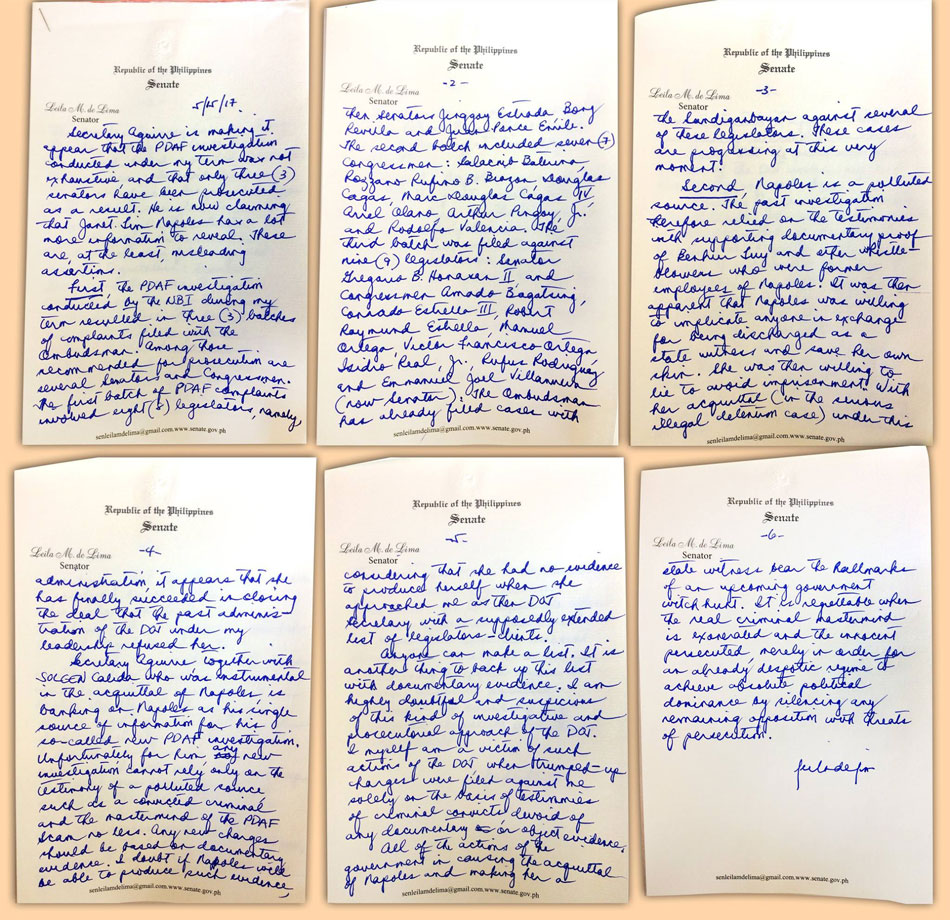 Republic of the Philippines
Senate
Leila M. de Lima
Senator
5/15/17.
Secretary Aguirre is making it
appear that the PDAF investigation
conducted under my term was not
exhaustive and that only three (3)
senators have been prosecuted
as a result. He is now claiming
that Janet Lim Napoles has a lot
more information to reveal. These
are, at the least, misleading
assertions.
First the PDAF investigation
conducted by the NBI during my
term resulted in three (3) batches
of complaints filed with the
Ombudsman. Among those
recommended for prosecution are
several Senators and Congressmen.
The first batch of PDAF complaints
involved eight (8) legislators, namely,
senleilamdelima@gmail.com.www.senate.gov.ph
Republic of the Philippines
Senate
-2-
Leila M. de Lima
Senator
then Senators Jinggoy Estrada Bong
Revilla and Juan Ponce Enrile.
The second batch included seven (7)
Congressmen: Salacnib Baterina
Rozzano Rufino B. Biazon Douglas
Cagas, Marc Douglas Cagas IV
Arrel Olano Arthur Pingoy, Jr.
and Rodolfo Valencia. The
third batch was filed against
nine (9) legislators: Senator
Gregorio B. Honasan II and
Congressmen Amado Bagatsing,
Conrado Estrella III, Robert
Raymund Estrella, Manuel
Ortega Victor Francisco Ortega
Isidro Real, Jr., Rufus Rodriguez
and Emmanuel Joel Villanueva
(now Senator). The Ombudsman
has already filed cases with
senleilamdelima@gmail.com.www.senate.gov.ph
Republic of the Philippines
Senate
-3-
Leila M. de Lima
Senator
the Sandiganbayan against several
of these legislators. These cases
are progressing at this very
moment.
Second, Napoles is a polluted
source. The past investigation
therefore relied on the testimonies
with supporting documentary proof
of Benhur Luy and other whistle
blowers who were former
employees of Napoles. It was then
apparent that Napoles was willing
to implicate anyone in exchange
for being discharged as a
state witness and save her own
skin. She was then willing to
lie to avoid imprisonment. With
her acquittal (in the serious
illegal detention case) under this
senleilamdelima@gmail.com.www.senate.gov.ph
Republic of the Philippines
Senate
-4-
Leila M. de Lima
Senator
administration it appears that she
has finally succeeded in closing
the deal that the past adminis-
tration of the DOJ under my
leadership refused her.
Secretary Aguirre together with
SOLGEN Calida who was instrumental
in the acquittal of Napoles is
banking on Napoles as his single
source of information for his
so-called new PDAF investigation.
Unfortunately for him, any new
investigation cannot rely only on the
testimony of a polluted source
such as a convicted criminal
and the mastermind of the PDAF
Scam no less. Any new charges
should be based on documentary
evidence. I doubt if Napoles will
be able to produce such evidence,
senleilamdelima@gmail.com.www.senate.gov.ph
Republic of the Philippines
Senate
-5-
Leila M. de Lima
Senator
considering that she had no evidence
to produce herself when she
approached me as then DOJ
Secretary with a supposedly extended
list of legislators-clients.
Anyone can make a list. It is
another thing to back up this list
with documentary evidence. I am
highly doubtful and suspicious
of this kind of investigative and
prosecutorial approach of the DOJ.
I myself am a victim of such
actions of the DOJ when trumped-up
charges were filed against me
solely on the basis of testimonies
of criminal convicts devoid of
any documentary or object evidence.
All of the actions of the
government in causing the acquittal
of Napoles and making her a
senleilamdelima@gmail.com.www.senate.gov.ph
Republic of the Philippines
Senate
-6-
Leila M. de Lima
Senator
state witness bear the hallmarks
of an upcoming government
witch hunt. It is regrettable when
the real criminal mastermind
is exonerated and the innocent
persecuted merely in order for
an already despotic regime to
achieve absolute political
dominance by silencing any
remaining opposition with threats
of persecution.
senleilamdelima@gmail.com.www.senate.gov.ph